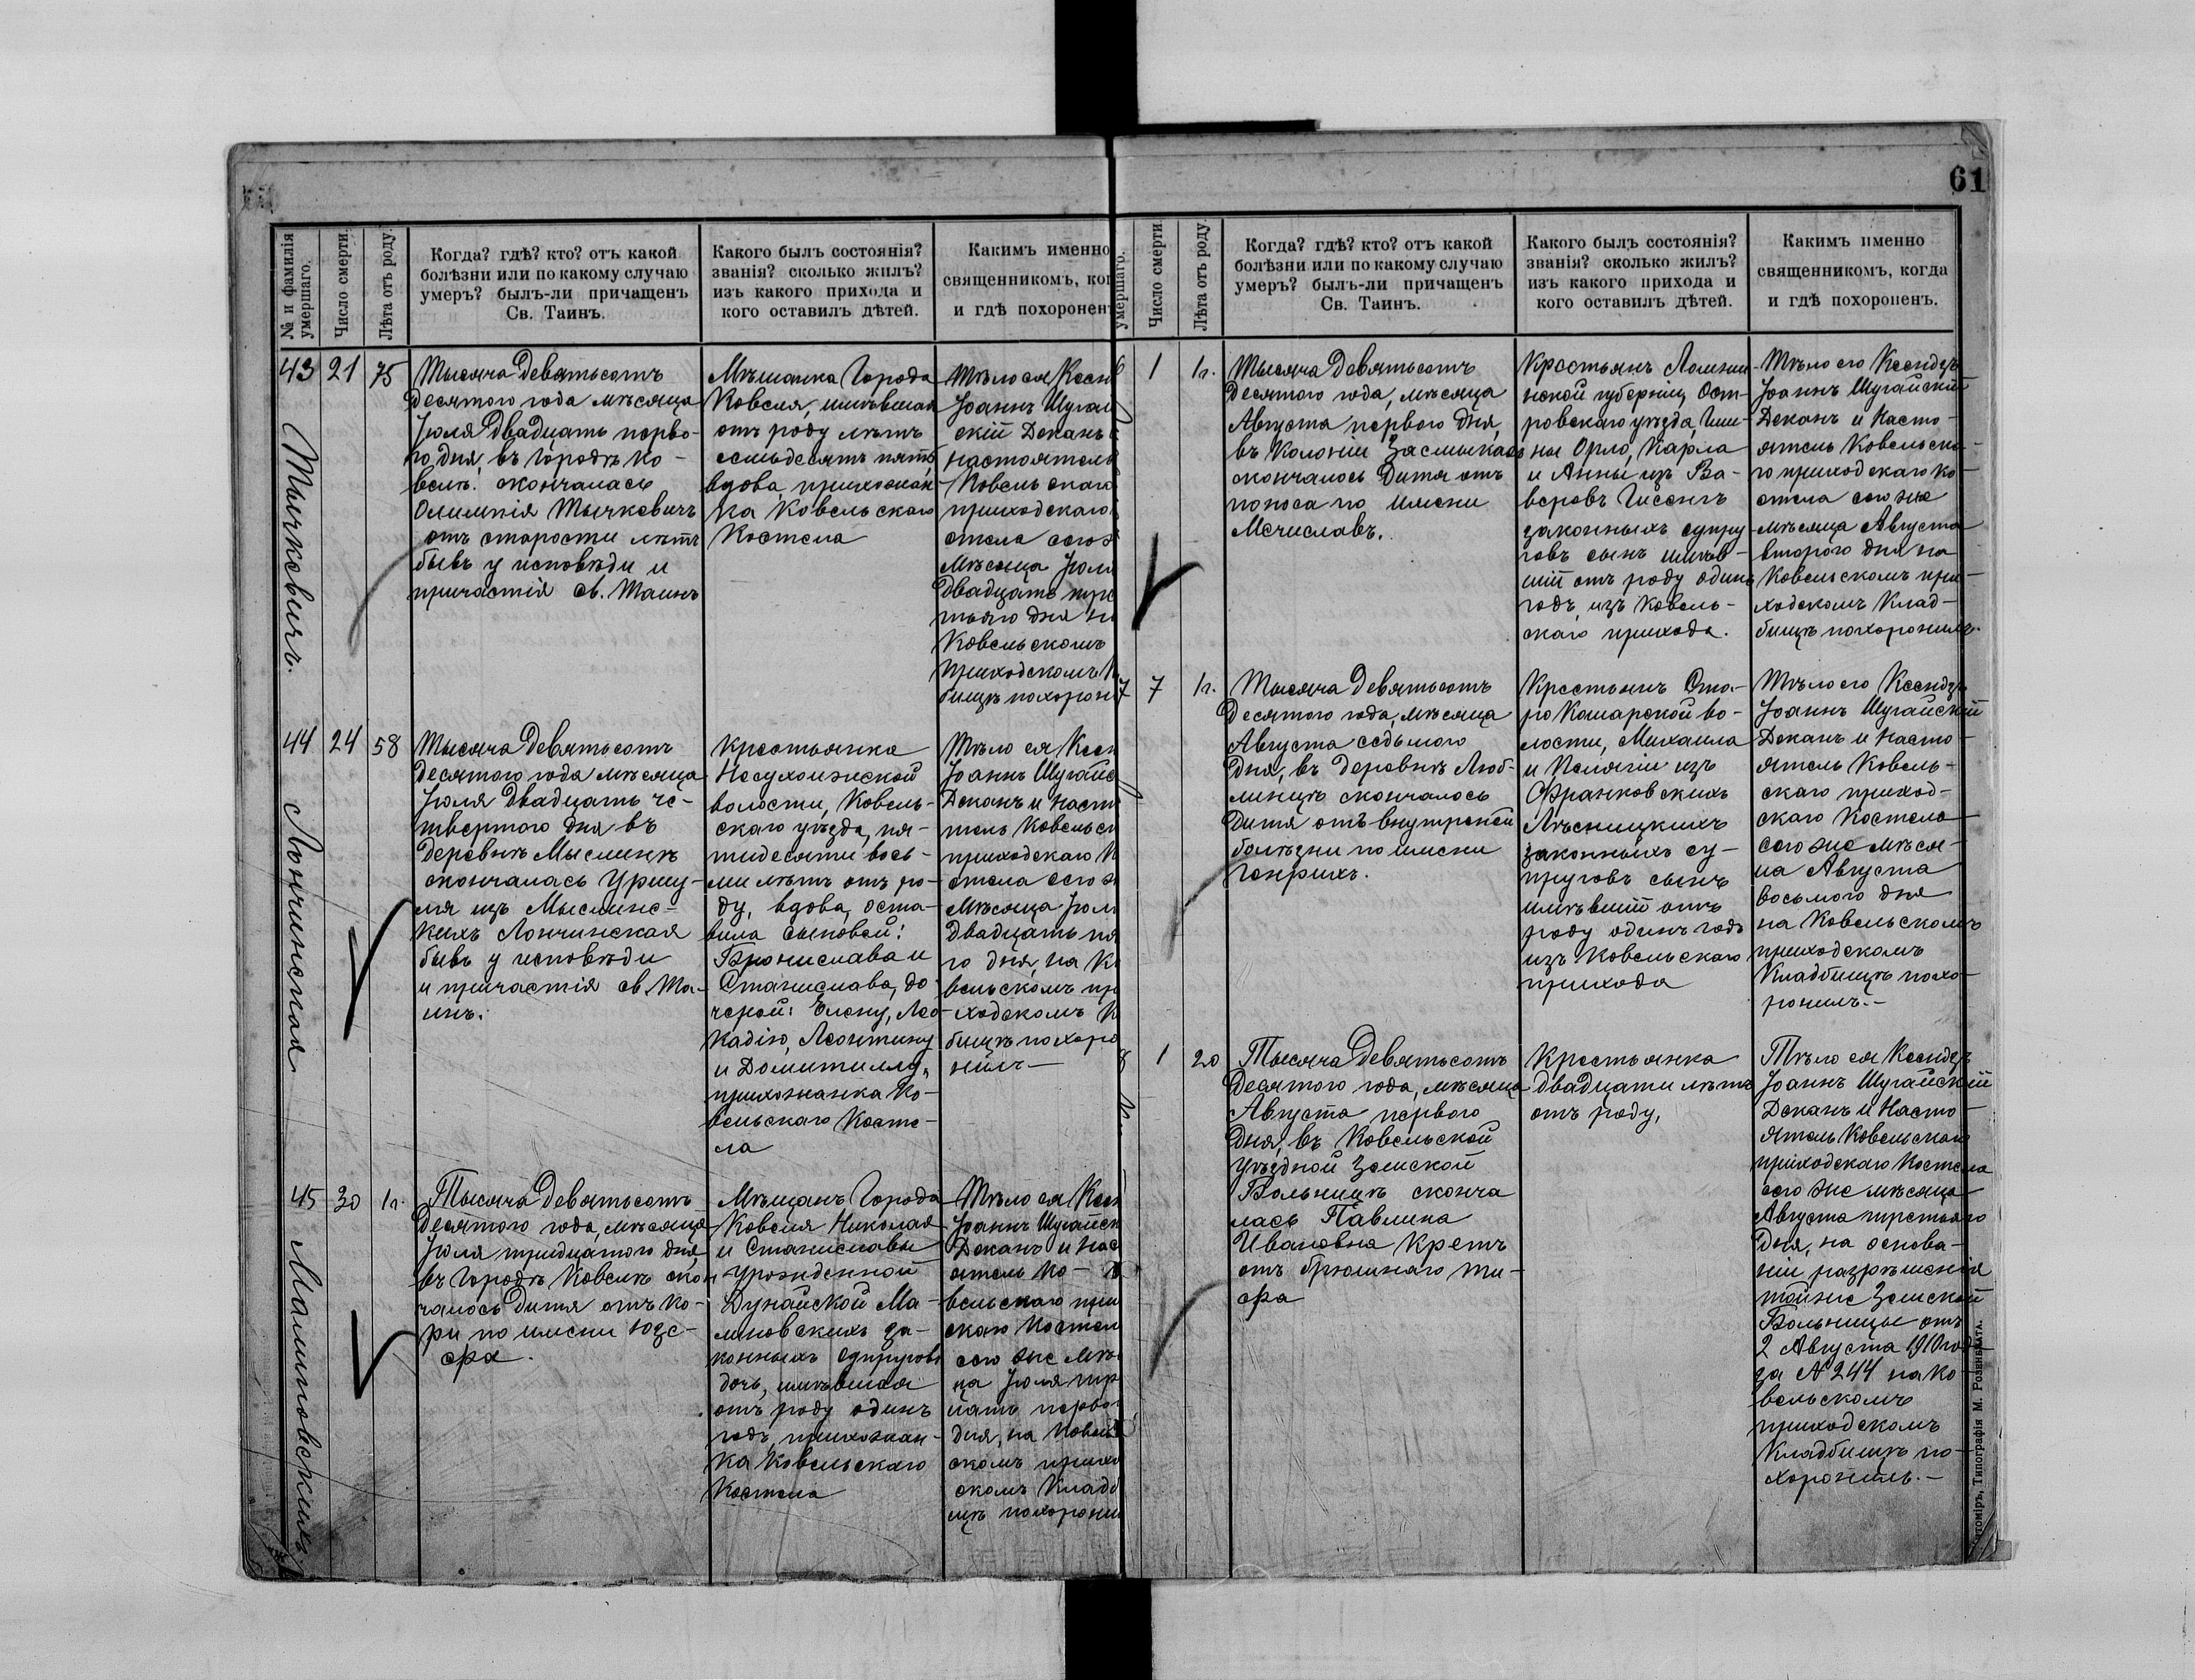 61
№ и фамилія умершаго.
Число смерти.
Лѣта отъ роду.
Когда? гдѣ? кто? отъ какой
болѣзни или по какому случаю
умеръ? былъ-ли причащенъ
Св. Таинъ.
Какого былъ состоянія?
званія? сколько жилъ?
изъ какого прихода и
кого оставилъ дѣтей.
Какимъ именно
священникомъ, ког
и гдѣ похоронен
43
Тычкевичъ.
21
75
Тысяча девятьсотъ
десятого года мѣсяца
Іюля двадцать перво-
го дня, въ городѣ Ко-
велѣ. скончалась
Олимпія Тычкевичъ
отъ старости лѣтъ
бывъ у исповѣди и
причастія св. Таинъ
Мѣщанка Города
Ковеля, имѣвшая
отъ роду лѣтъ
семьдесятъ пять
вдова, прихожан-
ка Ковельскаго
Костела
Тѣло ея Ксен
Іоаннъ Шугай
скій Деканъ
Настоятель
Ковельскаго
приходскаго
стела сего ж
Мѣсяца Іюля
двадцать тре
тьяго дня н
Ковельскомъ
приходскомъ К
бищѣ похорон
44
Лончинская
24
58
Тысяча девятьсотъ
десятого года мѣсяца
Іюля двадцать че-
твертого дня въ
деревнѣ Мыслинѣ
скончалась Уршу-
ля изъ Мыслинс-
кихъ Лончинская
бывъ у исповѣди
и причастія св. Та-
инъ.
Крестьянка
Несухоижской
волости, Ковель-
скаго уѣзда, пя-
тидесяти вось-
ми лѣтъ отъ ро-
ду, вдова, оста-
вила сыновей:
Бронислава и
Станислава, до
черей: Елену, Лео-
кадію, Леонтину
и Домитиллу,
прихожанка Ко-
вельскаго Косте-
ла
Тѣло ея Ксен
Іоаннъ Шугайс
Деканъ и Наст
тель Ковельск
приходскаго К
стела сего ж
Мѣсяца Іюл
двадцать пя
го дня, на Ко
вельскомъ пр
ходскомъ К
бищѣ похоро
нилъ —
45
Малиновскихъ
30
1г.
Тысяча девятьсотъ
десятого года, мѣсяца
Іюля тридцатого дня,
въ городѣ Ковелѣ скон
чалось дитя отъ ко-
ри по имени Юзе-
фа.
Мѣщанъ Города
Ковеля Николая
и Станиславы
урожденной
Дунайской Ма-
линовскихъ за-
конныхъ супруговъ
дочь, имѣвшая
отъ роду одинъ
годъ, прихожан-
ка Ковельскаго
Костела
Тѣло ея Ксен
Іоаннъ Шугайск
Деканъ и Нас
ятель Ко-
вельскаго при
скаго Костел
сего же мѣ
ца Іюля тр
цать перво
дня, на Ковел
скомъ прихо
скомъ Кладб
щѣ похорони
умершаго.
Число смерти.
Лѣта отъ роду.
Когда? гдѣ? кто? отъ какой
болѣзни или по какому случаю
умеръ? былъ-ли причащенъ
Св. Таинъ.
Какого былъ состоянія?
званія? сколько жилъ?
изъ какого прихода и
кого оставилъ дѣтей.
Какимъ именно
священникомъ, когда
и гдѣ похороненъ.
6
1
1г.
Тысяча девятьсотъ
десятого года, мѣсяца
Августа первого дня,
въ Колоніи Засмыкахъ
скончалось дитя отъ
поноса по имени
Мечиславъ.
Крестьянъ Ломжин-
ской губерніи, Ост-
ровскаго уѣзда, Гми-
ны Орло, Карла
и Анны изъ Ва-
веровъ Гисенгъ
законныхъ супру-
говъ сынъ имѣв-
шій отъ роду одинъ
годъ изъ Ковель-
скаго прихода.
Тѣло его Ксендзъ
Іоаннъ Шугайскій
Деканъ и Насто-
ятель Ковельска-
го приходскаго Ко-
стела сего же
мѣсяца Августа
второго дня на
Ковельскомъ при-
ходскомъ Клад-
бищѣ похоронилъ.
7
7
1г.
Тысяча девятьсотъ
десятого года, мѣсяца
Августа седьмого
дня, въ деревнѣ Люб-
линцѣ скончалось
дитя отъ внутренней
болѣзни по имени
Генрихъ.
Крестьянъ Ста-
ро Кошарской во-
лости, Михаила
и Пелягіи изъ
Франковскихъ
Лѣсницкихъ
законныхъ су-
пруговъ сынъ
имѣвшій отъ
роду одинъ годъ
изъ Ковельскаго
прихода
Тѣло его Ксендзъ
Іоаннъ Шугайскій
Деканъ и Насто-
ятель Ковель-
скаго приход-
скаго Костела
сего же мѣся-
ца Августа
восьмого дня
на Ковельскомъ
приходскомъ
Кладбищѣ похо-
ронилъ.—
8
1
20
Тысяча девятьсотъ
десятого года, мѣсяца
Августа первого
дня, въ Ковельской
Уѣздной Земской
Больницѣ сконча
лась Павлина
Ивановна Кретъ
отъ брюшнаго ти-
фа
Крестьянка
двадцати лѣтъ
отъ роду,
Тѣло ея Ксендзъ
Іоаннъ Шугайскій
Деканъ и Насто-
ятель Ковельскаго
приходскаго Костела
сего же мѣсяца
Августа третьяго
дня, на основа-
ніи разрѣшенія
тойже Земской
Больницы отъ
2 Августа 1910 года
за № 244 на Ко-
вельскомъ
приходскомъ
Кладбищѣ по-
хоронилъ.—
томіръ, Типографія М. Розенблата.